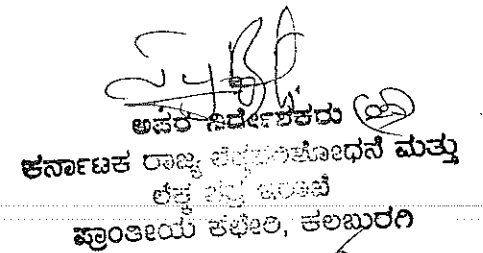 ಅಪರ ನಿರ್ದೇಶಕರು (ಪ್ರ)
ಕರ್ನಾಟಕ ರಾಜ್ಯ ಲೆಕ್ಕಪರಿಶೋಧನೆ ಮತ್ತು
ಲೆಕ್ಕ ಪತ್ರ ಇಲಾಖೆ
ಪ್ರಾಂತೀಯ ಕಛೇರಿ, ಕಲಬುರಗಿ